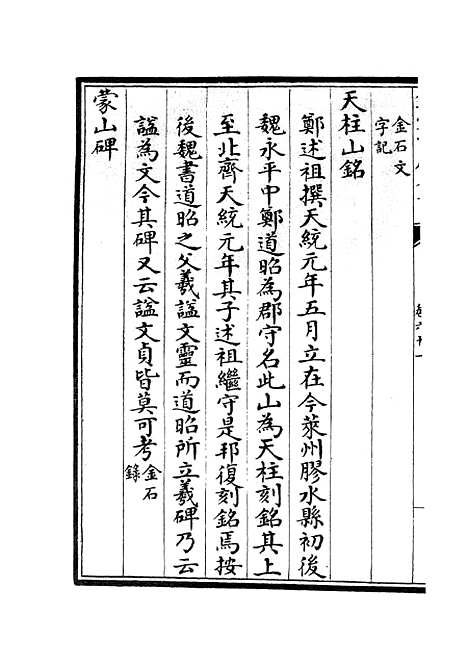 金石文
字記
天柱山銘
鄭述祖撰天統元年五月立在今萊州膠水縣初後
魏永平中鄭道昭為郡守名此山為天柱刻銘其上
至北齊天統元年其子述祖繼守是邦復刻銘焉按
後魏書道昭之父羲謚文靈而道昭所立羲碑乃云
謚為文今其碑又云謚文貞皆莫可考金石
錄
蒙山碑